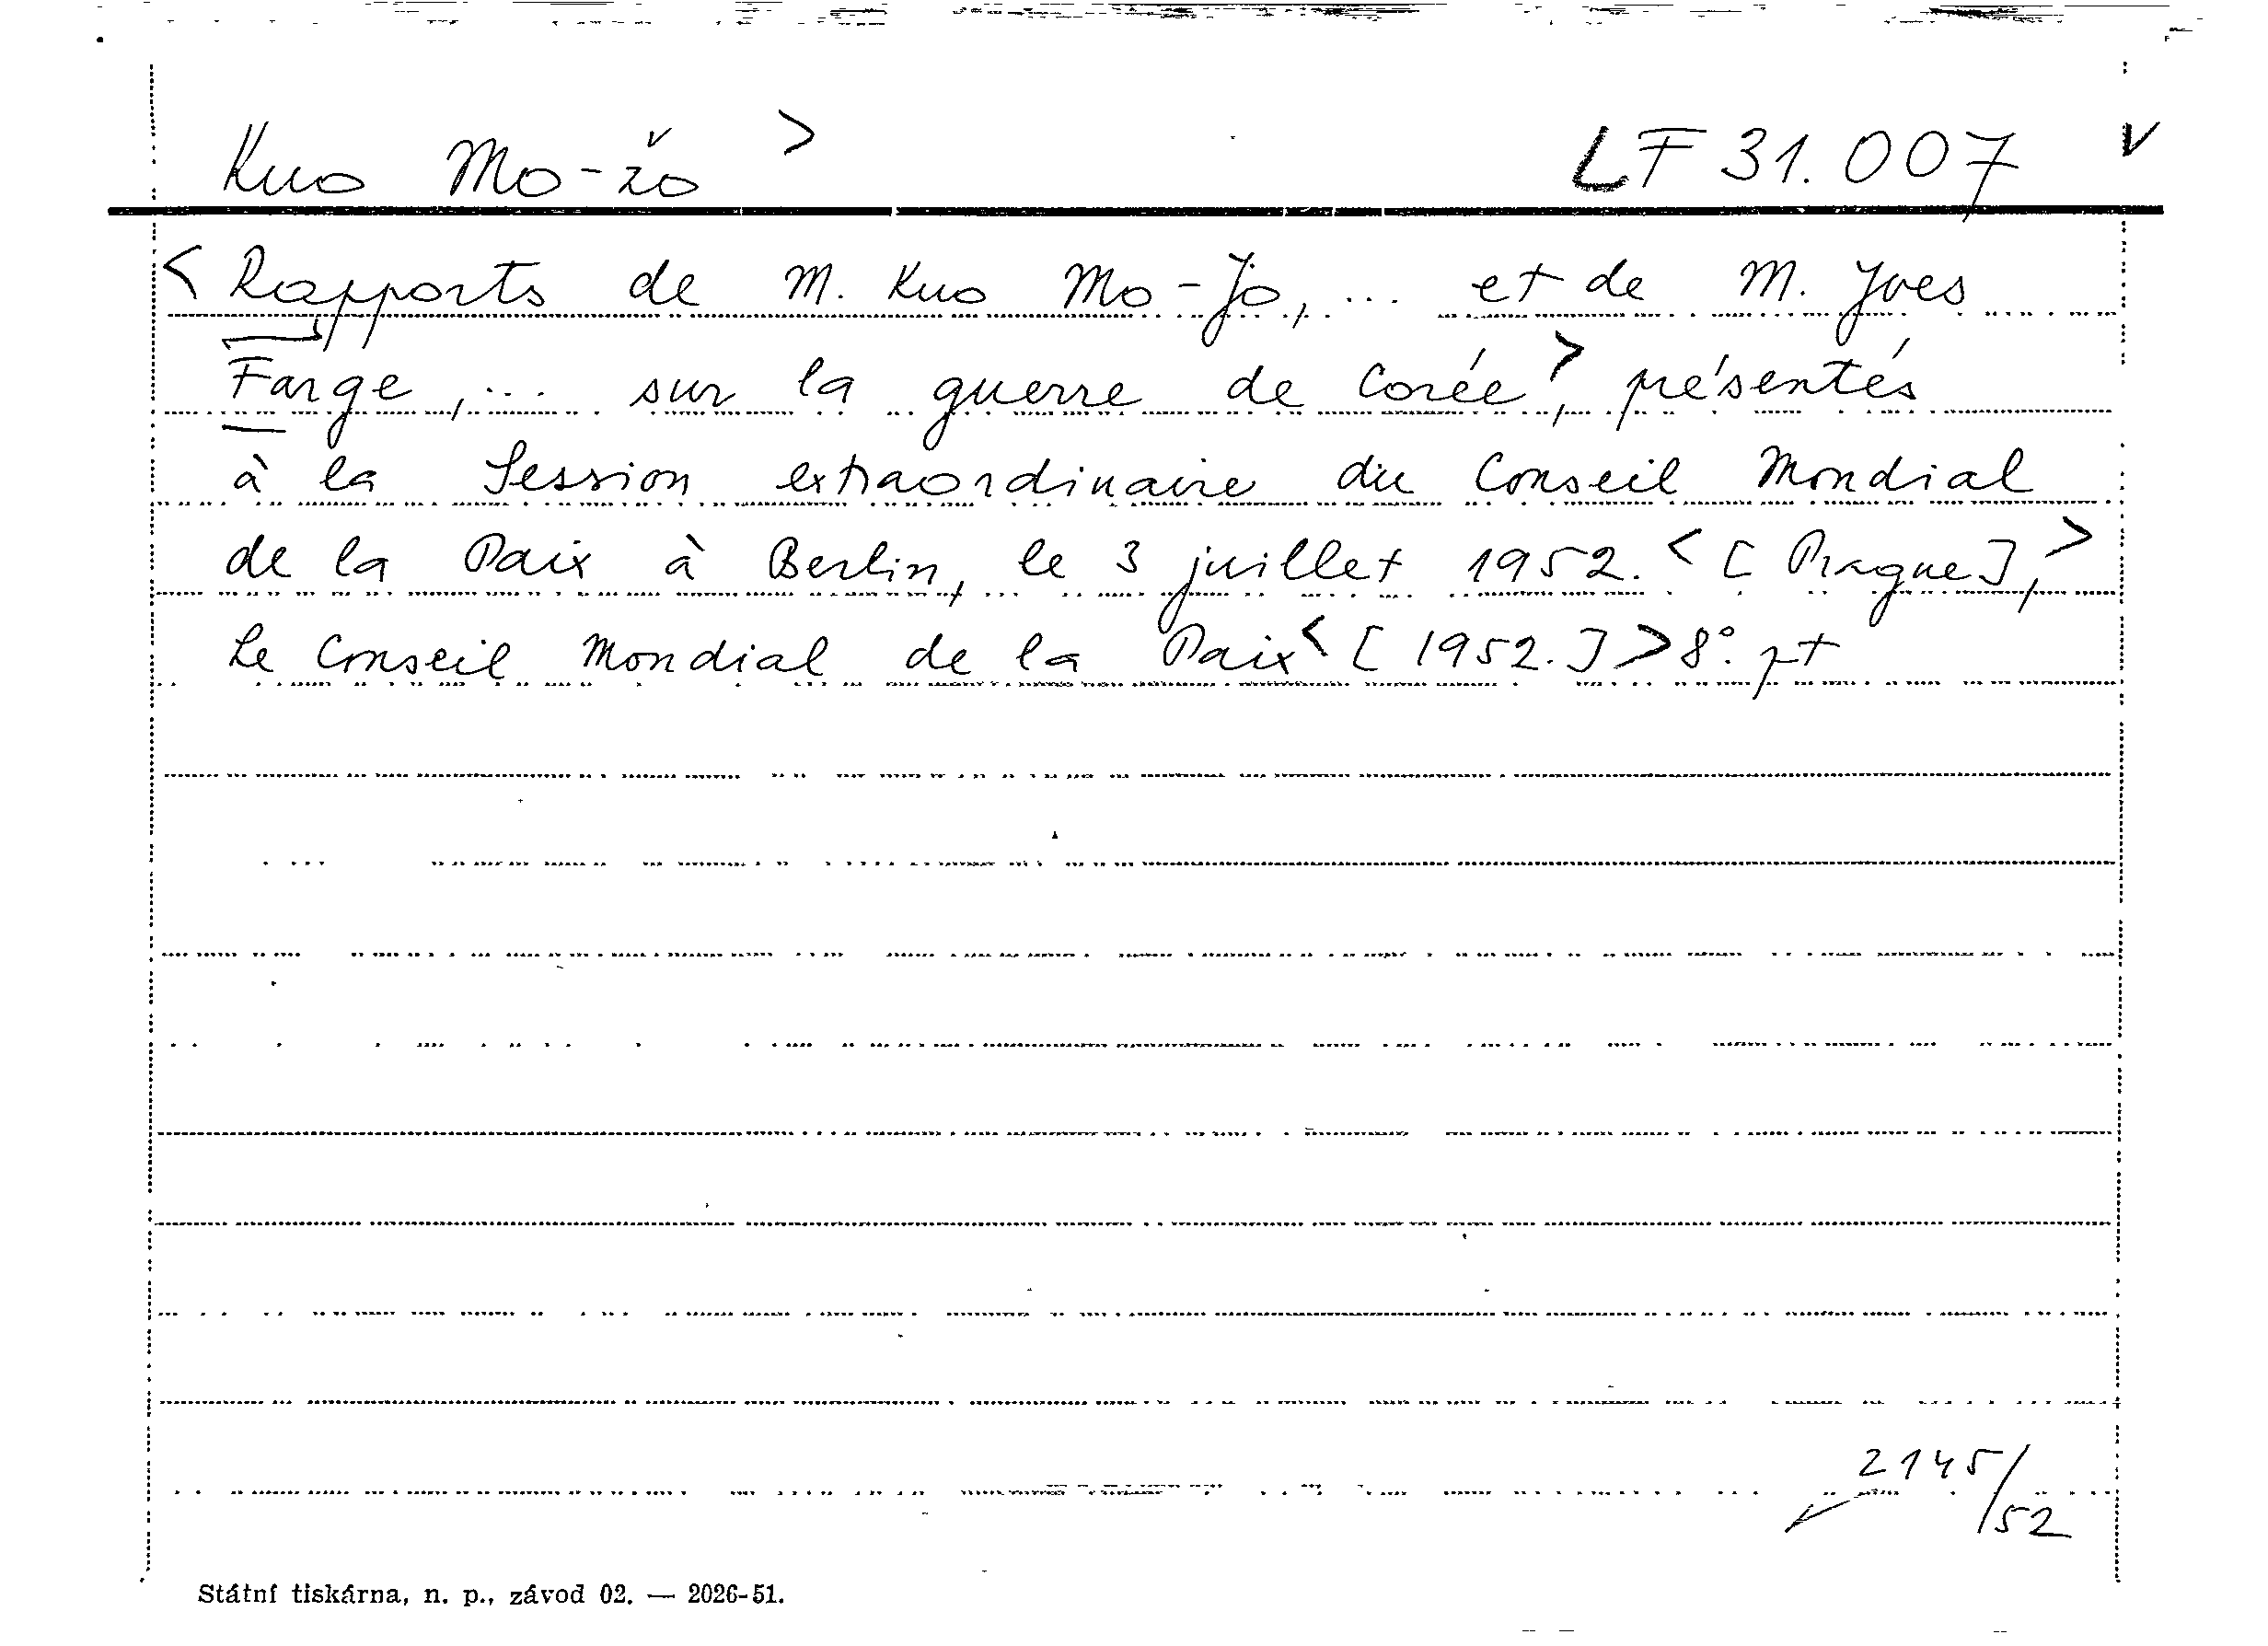 Kuo Mo-žo > LF 31.007 v
< Rapports de M. Kuo Mo-Jo, ... et de M. Yves
Farge, ... sur la guerre de Corée >, présentés
à la Session extraordinaire du Conseil Mondial
de la Paix à Berlin, le 3 juillet 1952. < [Prague], >
Le Conseil Mondial de la Paix < [1952.] > 8°. pt
2145/52
Státní tiskárna, n. p., závod 02. — 2026-51.